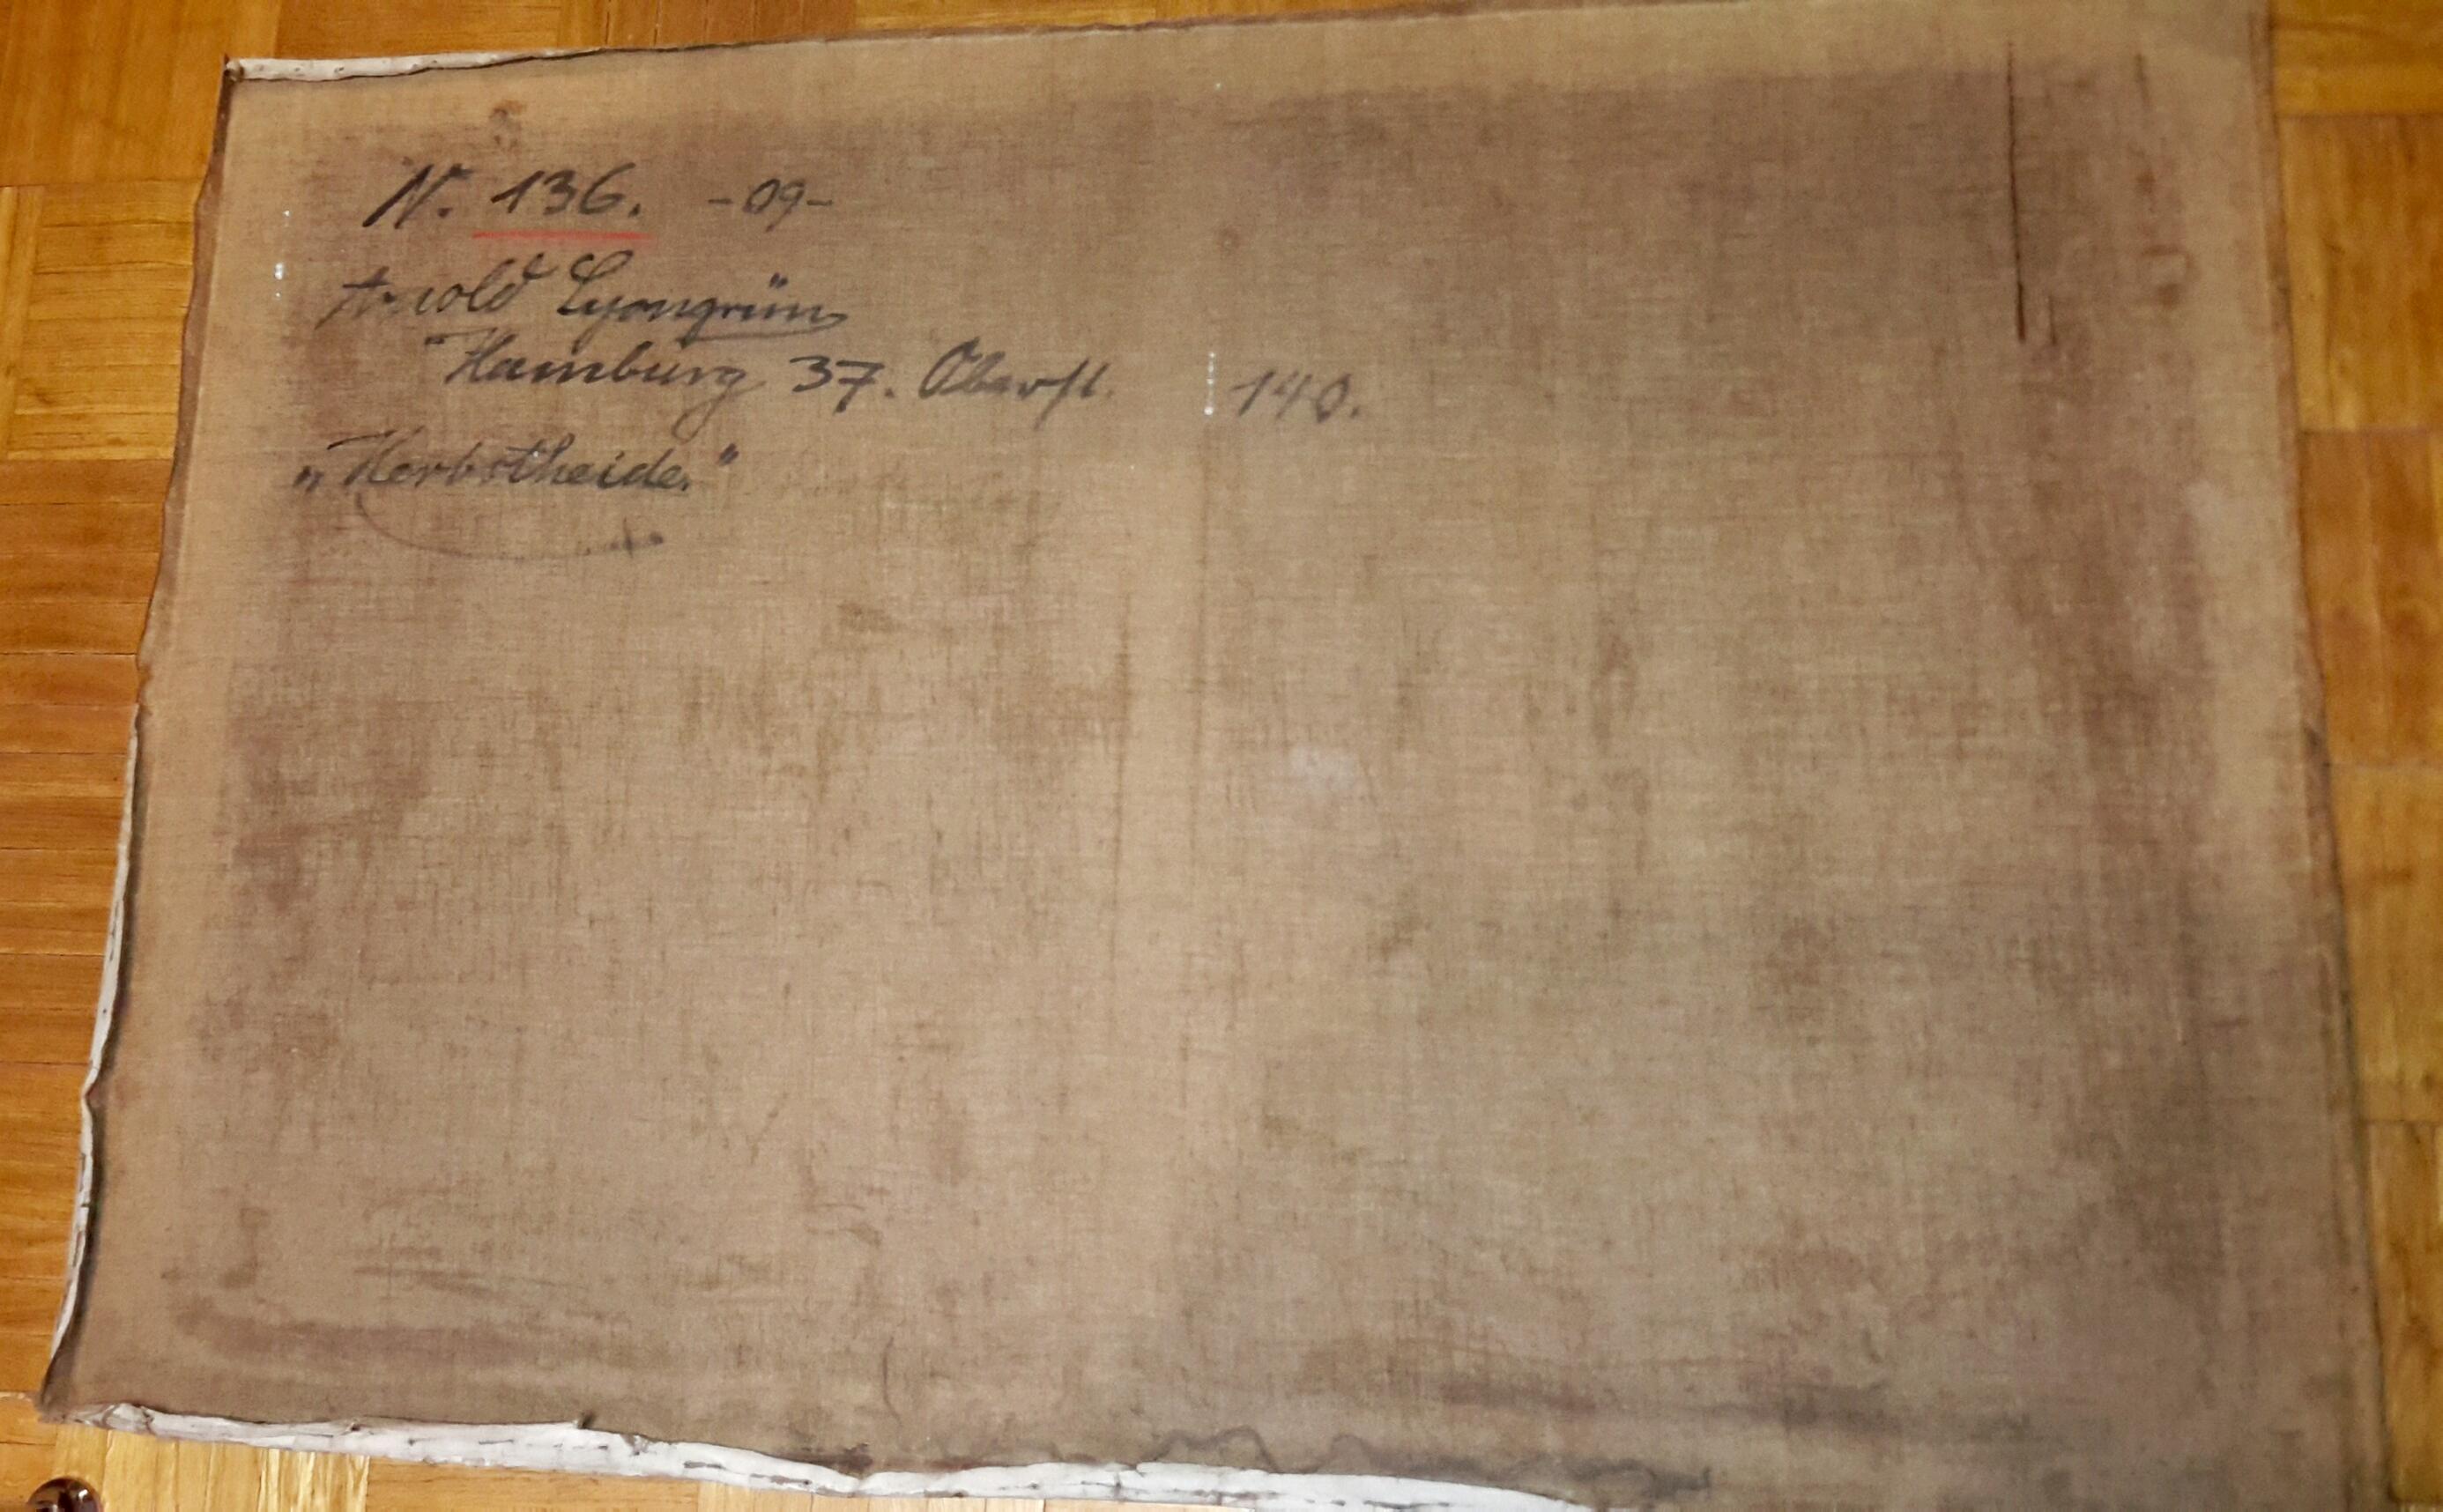 N. 136. -09-
Arnold Lyongrün
Hamburg 37. Oberst. 140.
„Herbstheide."